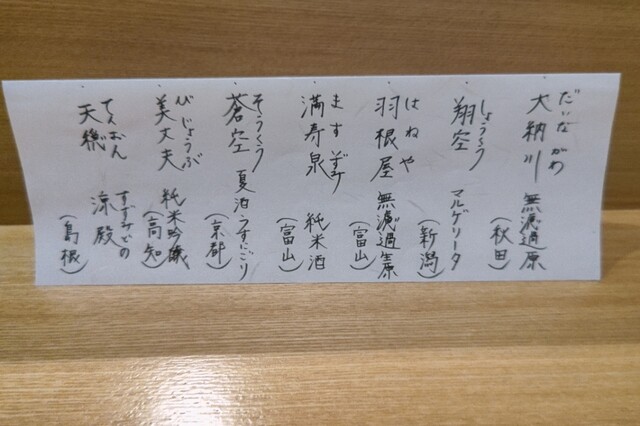 だいながわ
大納川 無濾過原
(秋田)
しょうくう
翔空 マルゲリータ
(新潟)
はねや
羽根屋 無濾過生原
(富山)
ますいずみ
満寿泉 純米酒
(富山)
そうくう
蒼空 夏泊うすにごり
(京都)
びじょうふ
美丈夫 純米吟醸
(高知)
てんおん
天穏 涼殿
すずみどの
(島根)